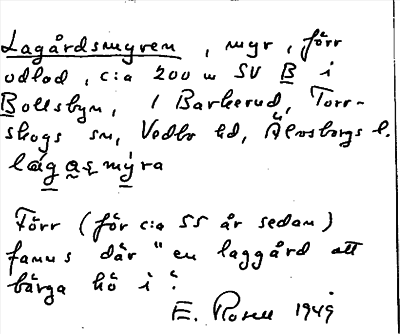 Lagårdsmyren, myr, förr
odlad, c:a 200 m SV B i
Bollsbyn, 1 Barkerud, Torr-
skogs sn, Vedbo hd, Älvsborgs l.
lág as mýra
Förr (för c:a 55 år sedan)
fanns där "en laggård att
bärga hö i".
E. Rosell 1949